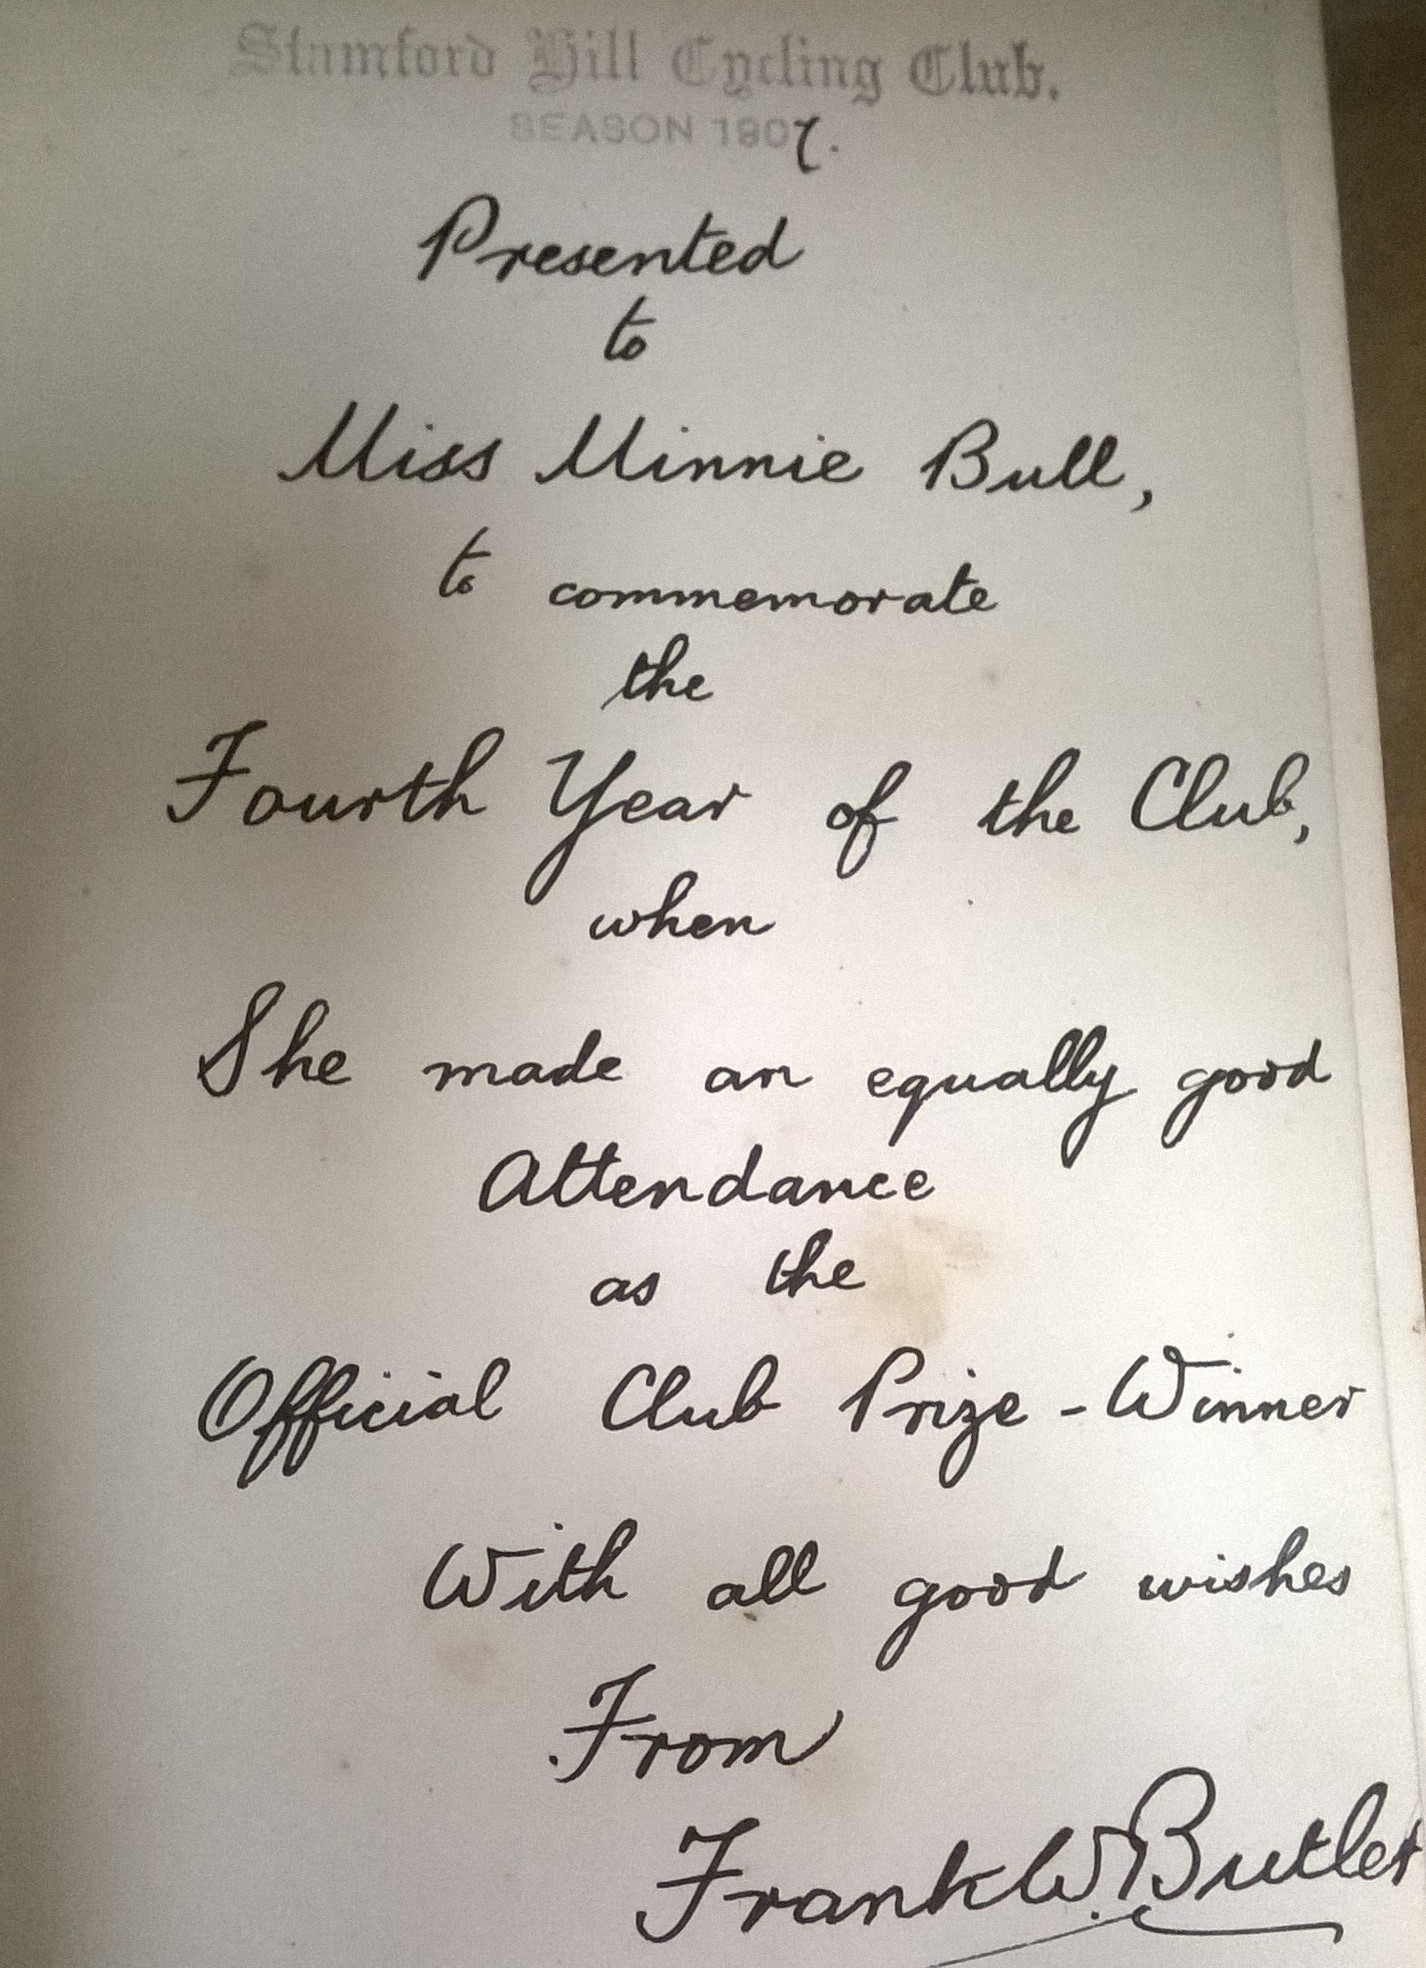 Stamford Hill Cycling Club.
SEASON 1907.
Presented
to
Miss Minnie Bull,
to commemorate
the
Fourth Year of the Club,
when
She made an equally good
Attendance
as the
Official Club Prize-Winner
With all good wishes
From
Frank W. Butler